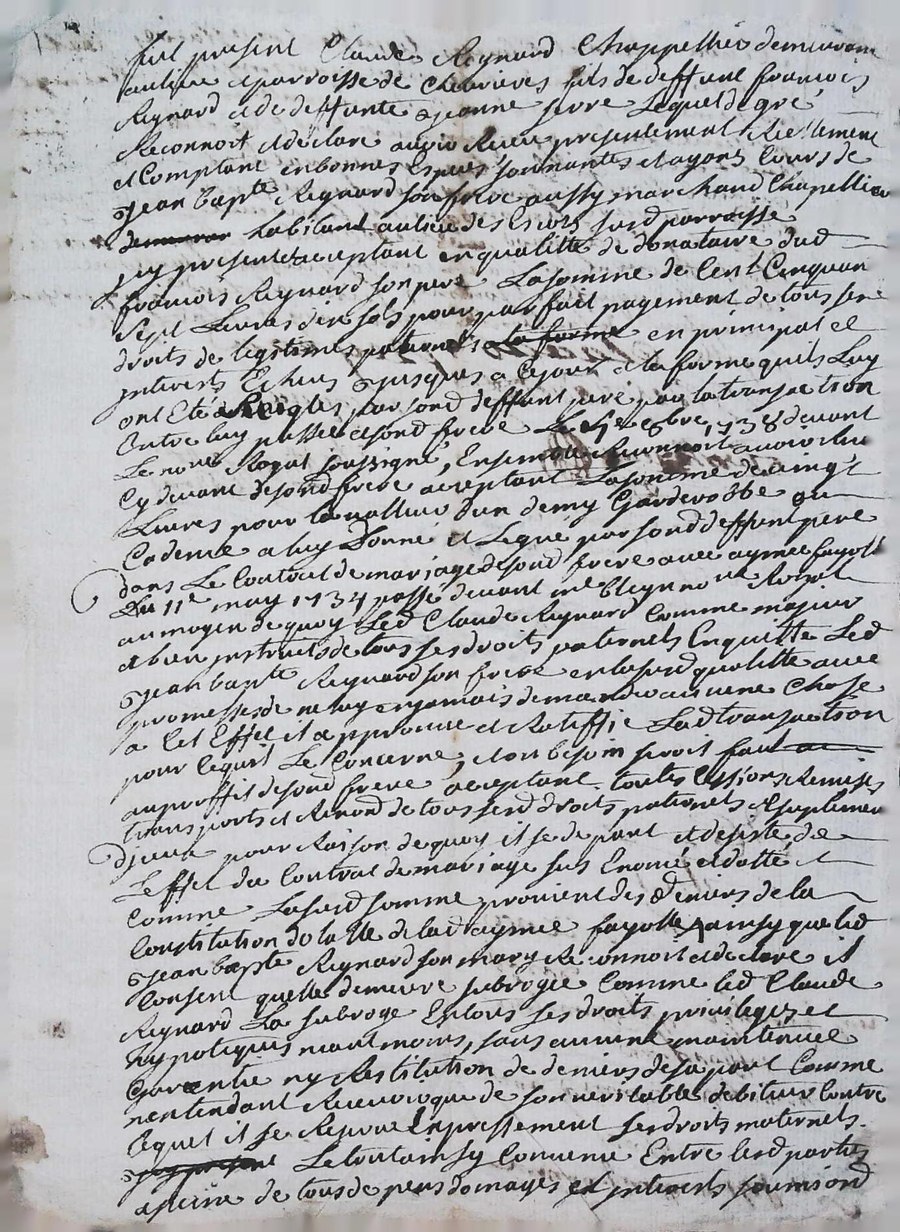 fut present Claude Reynard Chappellier demeurant
au lieu et parroisse de Chevrieres fils de deffunt francois
Reynard et de deffunte Jeanne serre Lequel de gré
Reconnoit et declare avoir Receu presentement Reellement
et Comptant en bonnes Especes sonnantes et ayans Cours de
Jean bapte Reynard son frere aussy marchand Chapellier
habitant au lieu des susd parroisse
icy present et aceptant en qualitté de donataire dud
francois Reynard son pere La somme de Cent Cinquan
Sept Livres dix sols pour parfait payement de tous ses
droits de legitimes paternels en principal et
jnterests Echus jusques a ce jour et la forme quils Luy
ont Eté Reglés par sond deffunt pere par la transaction
Entre luy passée et sond frere Le 8bre 1738 devant
Le nore Royal soussigné, Ensemble Reconnoit avoir Receu
Cy devant de sond frere aceptant La somme de vingt
Livres pour la valleur d'un demy Garderobbe qui
Cadenle a luy Donné et Legué par sond deffunt pere
dans Le Contrat de mariage de sond frere avec aymée fayolle
Du 11e may 1734 passé devant me nore Royal
au moyen de quoy Led Claude Reynard Comme majeur
et bien instruits de tous ses droits paternels Enquitte Led
Jean bapte Reynard son frere en lasusd qualitté avec
promesses de ne luy en jamais demander aucune Chose
a Cet Effet il approuve et Ratiffie Lad transaction
pour Ce quil Le Concerne, et ou besoin seroit fait
au proffit de sond frere aceptant toutes Cessions Remises
transports et Renond de tous sesd droits paternels et suplement
pour Raison de quoy il se depart et desiste de
Leffet du Contrat de mariage sus Enoncé et datté et
Comme Lasusd somme provient des Deniers de la
Constitution dotalle de lad aymée fayolle ainsy que led
Jean bapte Reynard son mary Reconnoit et declare il
Consent quelle demeure subrogée Comme led Claude
Reynard La subroge En tous ses droits privileges et
hypoteques neantmoins, sans aucune maintenue
Garentie ny Restitution de deniers de sa part Comme
nentendant Recevoir que de son veritable debiteur Contre
lequel il se Reserve Expressement ses droits maternels.
Le tout ainsy Convenu Entre lesd parties
a peine de tous depens domages et jnterests soumis ond